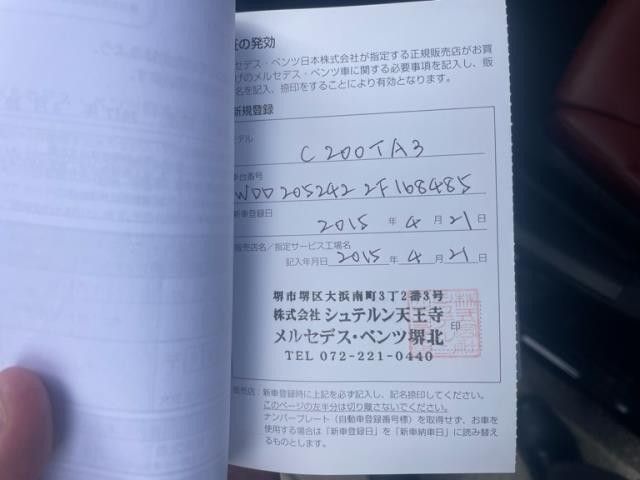 証の発効
セデス・ベンツ日本株式会社が指定する正規販売店がお買
げのメルセデス・ベンツ車に関する必要事項を記入し、販
名を記入、捺印をすることにより有効となります。
新規登録
デル
C 200TA3
車台番号
WDD 205242 2F168485
新車登録日 2015 年 4 月 21 日
販売店名／指定サービス工場名
記入年月日 2015 年 4 月 21 日
堺市堺区大浜南町3丁2番3号
株式会社 シュテルン天王寺
メルセデス・ベンツ堺北
印
TEL 072-221-0440
販売店：新車登録時に上記を必ず記入し、記名捺印してください。
このページの左半分は切り離さないでください。
ナンバープレート（自動車登録番号標）を取得せず、お車を
使用する場合は「新車登録日」を「新車納車日」に読み替え
るものとします。